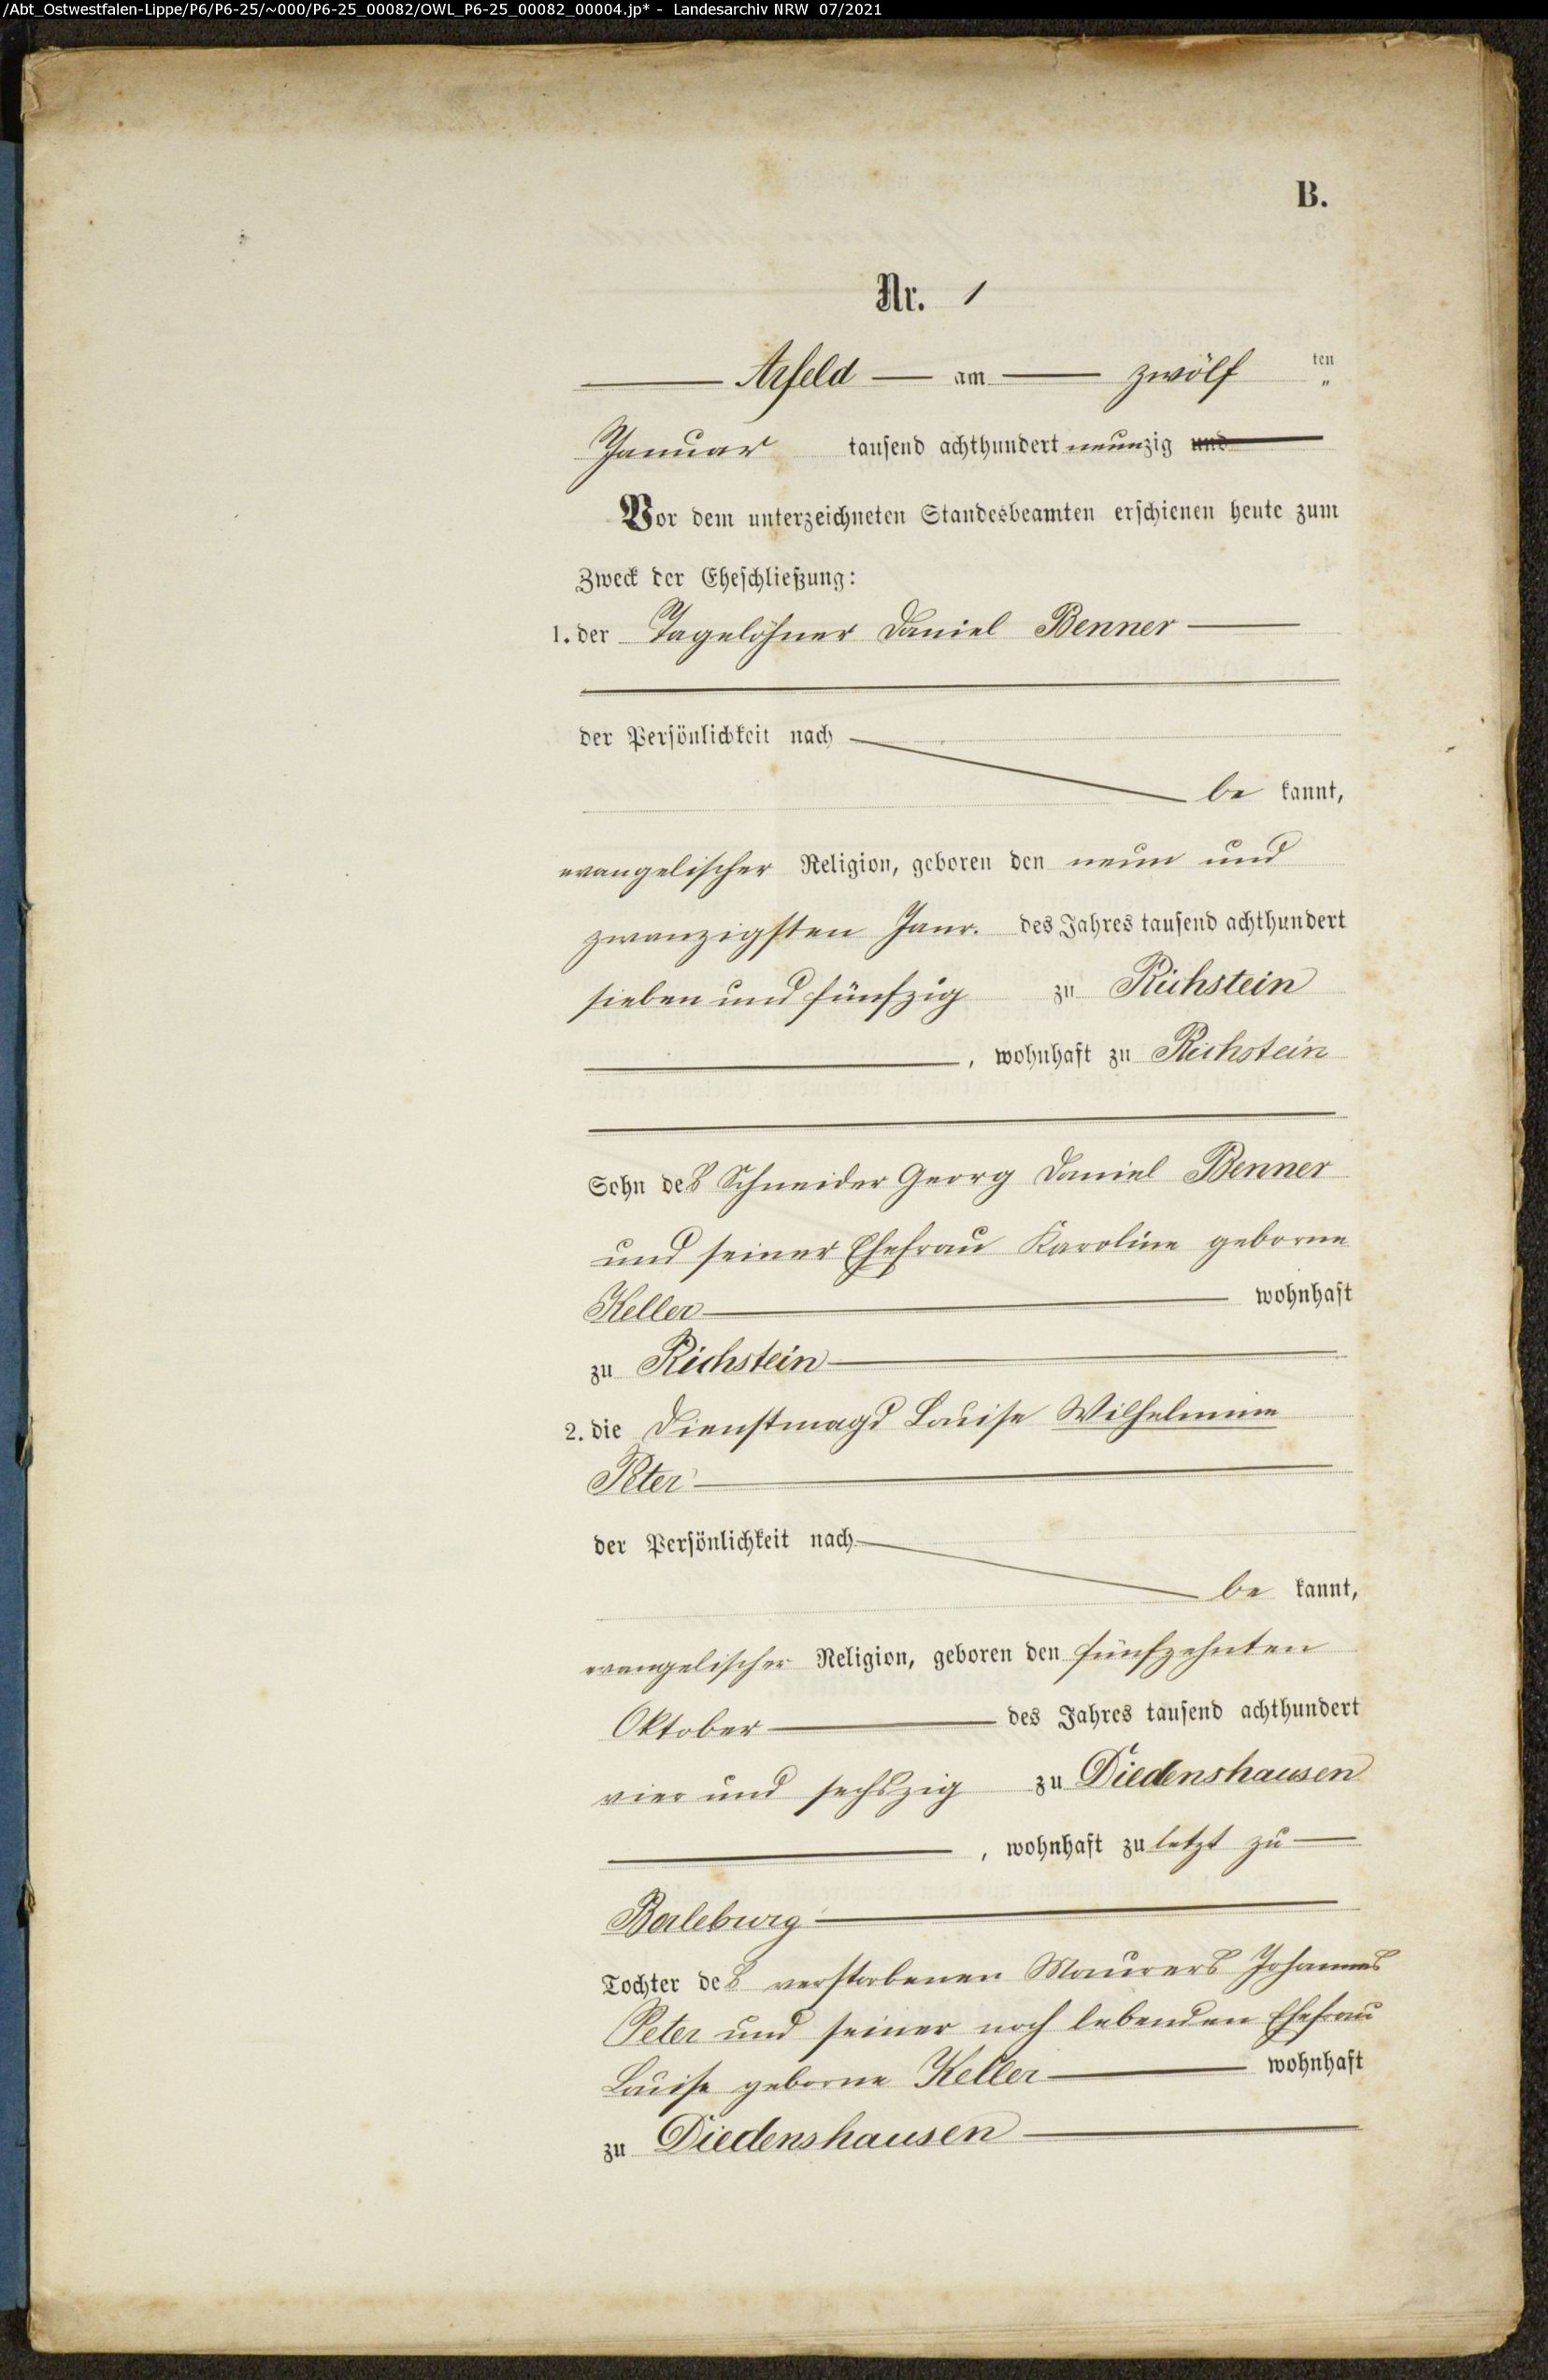 /Abt_Ostwestfalen-Lippe/P6/P6-25/~000/P6-25_00082/OWL_P6-25_00082_00004.jp* - Landesarchiv NRW 07/2021
B.
Nr. 1
Arfeld am zwölf ten "
Januar tausend achthundert neunzig und
Vor dem unterzeichneten Standesbeamten erschienen heute zum
Zweck der Eheschließung:
1. der Tagelöhner Daniel Benner
der Persönlichkeit nach
be kannt,
evangelischer Religion, geboren den neun und
zwanzigsten Janr. des Jahres tausend achthundert
sieben und fünfzig zu Richstein
, wohnhaft zu Richstein
Sohn des Schneider Georg Daniel Benner
und seiner Ehefrau Karoline geborne
Keller wohnhaft
zu Richstein
2. die Dienstmagd Louise Wilhelmine
Peter
der Persönlichkeit nach
be kannt,
evangelischer Religion, geboren den fünfzehnten
Oktober des Jahres tausend achthundert
vier und sechszig zu Diedenshausen
, wohnhaft zuletzt zu
Berleburg
Tochter des verstorbenen Maurers Johannes
Peter und seiner noch lebenden Ehefrau
Louise geborne Keller wohnhaft
zu Diedenshausen